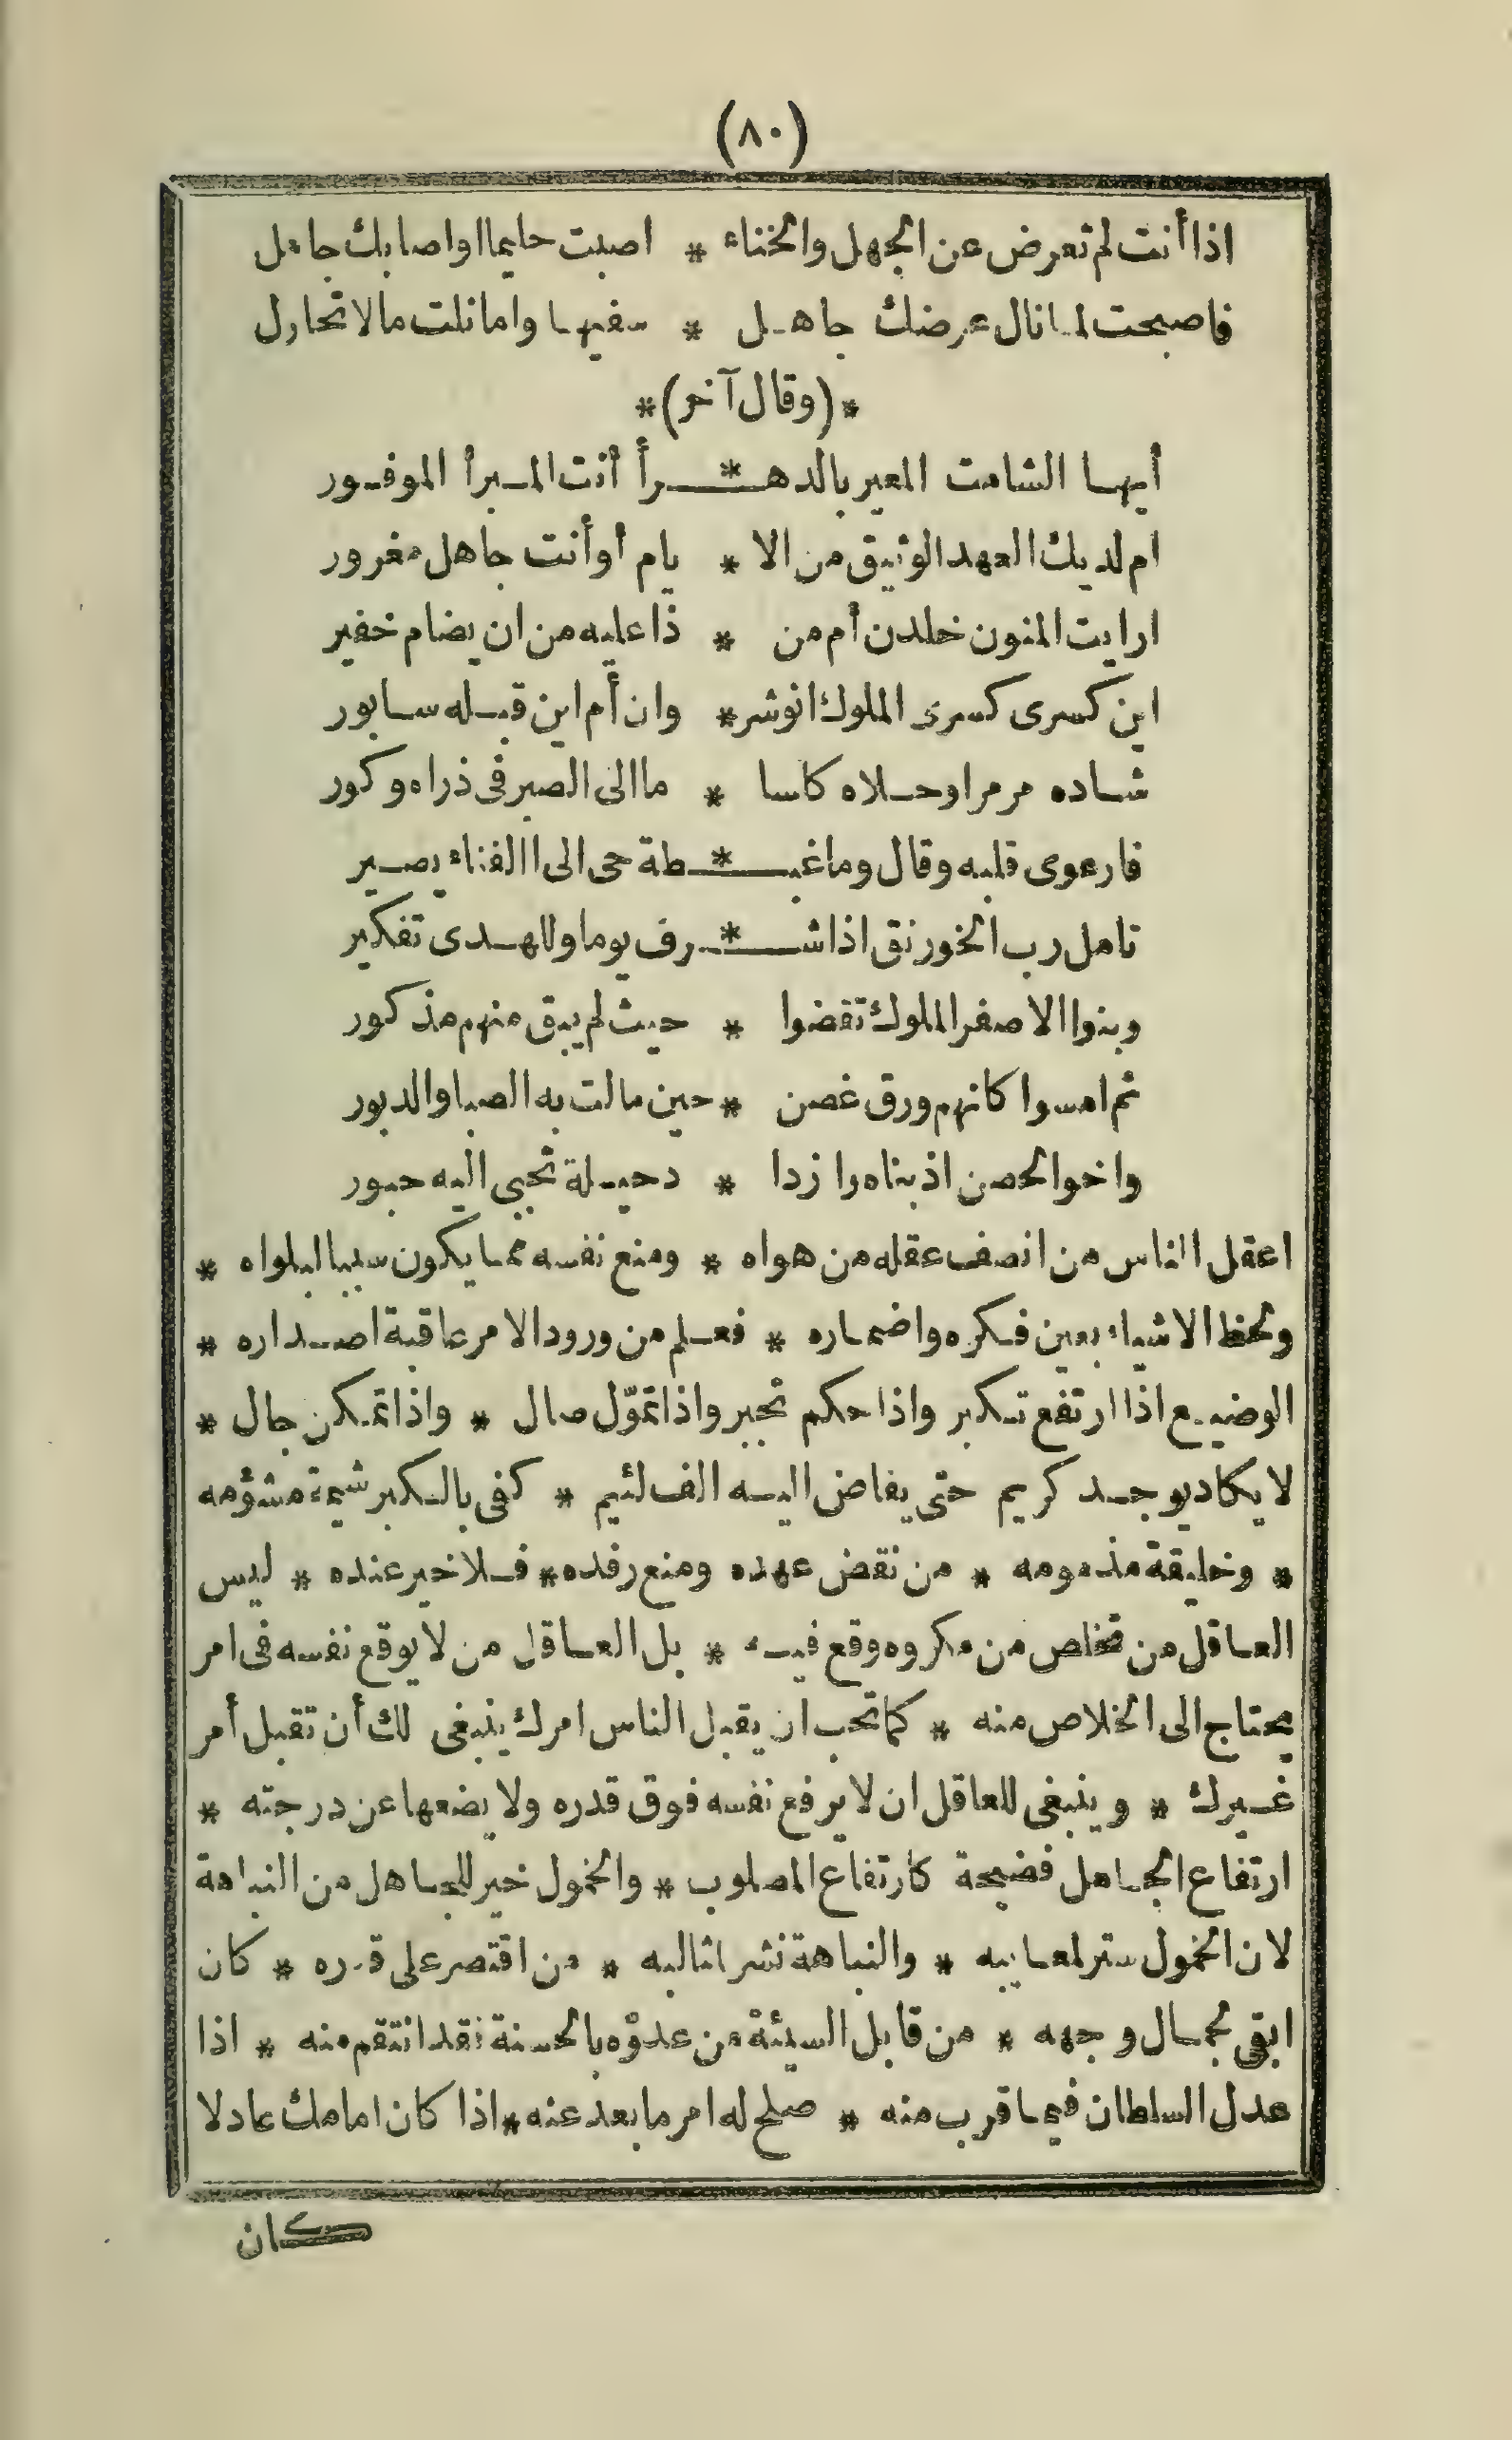 (٨٠)
اذا أنت لم تعرض عن الجهل والخناء * اصبت حليما او اصابك جاهل
فاصبحت لما نال عرضك جاهل * سفيها واما نلت مالا تحاول
*(وقال آخر)*
أيها الشامت المعير بالده * رأ أنت المبرأ الموفور
ام لديك العهد الوثيق من الا * يام أو أنت جاهل مغرور
ارايت المنون خلدن أم من * ذا عليه من ان يضام خفير
اين كسرى كسرى الملوك انوشر * وان أم اين قبله سابور
شاده مرمرا وحلاه كاسا * ما الى الصير فى ذراه وكور
فارعوى قلبه وقال وما غب * طة حى الى الفناء يصير
تامل رب الخورنق اذا ش * رف يوما وللهدى تفكير
وبنوا الاصفر الملوك تقضوا * حيث لم يبق منهم مذكور
ثم امسوا كانهم ورق غصن * حين مالت به الصبا والدبور
واخوا الحصن اذ بناه وا زدا * دحيلة تجبى اليه حبور
اعقل الناس من انصف عقله من هواه * ومنع نفسه مما يكون سببا لبلواه *
ولحظ الاشياء بعين فكره واضماره * فعلم من ورود الامر عاقبة اصداره *
الوضيع اذا ارتفع تكبر واذا حكم تجبر واذا تموّل صال * واذا تمكن جال *
لا يكاد يوجد كريم حتى يفاض اليه الف لئيم * كفى بالكبر شيمة مشؤمه
* وخليقة مذمومه * من نقض عهده ومنع رفده * فلا خير عنده * ليس
العاقل من تخلص من مكروه وقع فيه * بل العاقل من لا يوقع نفسه فى امر
يحتاج الى الخلاص منه * كما تحب ان يقبل الناس امرك ينبغى لك أن تقبل أمر
غيرك * وينبغى للعاقل ان لا يرفع نفسه فوق قدره ولا يضعها عن درجته *
ارتفاع الجاهل فضيحة كارتفاع المصلوب * والخمول خير للجاهل من النباهة
لان الخمول ستر لمعايبه * والنباهة نشر لمثالبه * من اقتصر على قدره * كان
ابقى لجمال وجهه * من قابل السيئة من عدوّه بالحسنة فقد انتقم منه * اذا
عدل السلطان فيما قرب منه * صلح له امر ما بعد عنه * اذا كان امامك عادلا
كان